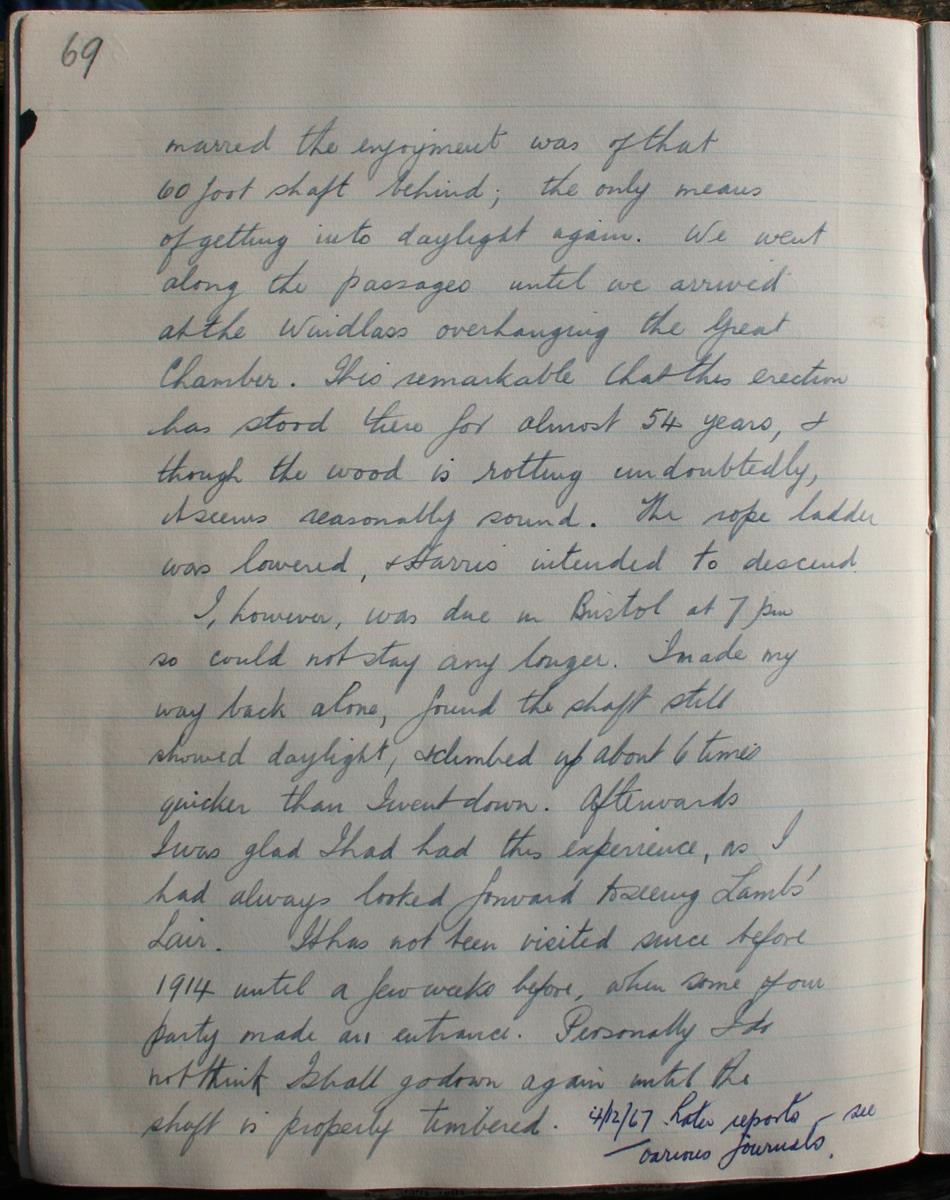 69
marred the enjoyment was of that
60 foot shaft behind; the only means
of getting into daylight again. We went
along the passages until we arrived
at the Windlass overhanging the Great
Chamber. It is remarkable that this erection
has stood there for almost 54 years, &
though the wood is rotting undoubtedly,
it seems reasonably sound. The rope ladder
was lowered, & Harris intended to descend.
I, however, was due in Bristol at 7 pm
so could not stay any longer. I made my
way back alone, found the shaft still
showed daylight, & climbed up about 6 times
quicker than I went down. Afterwards
I was glad I had had this experience, as I
had always looked forward to seeing Lambs'
Lair. It has not been visited since before
1914 until a few weeks before, when some of our
party made an entrance. Personally I do
not think I shall go down again until the
shaft is properly timbered.
4/12/67 Later reports - see
various journals.